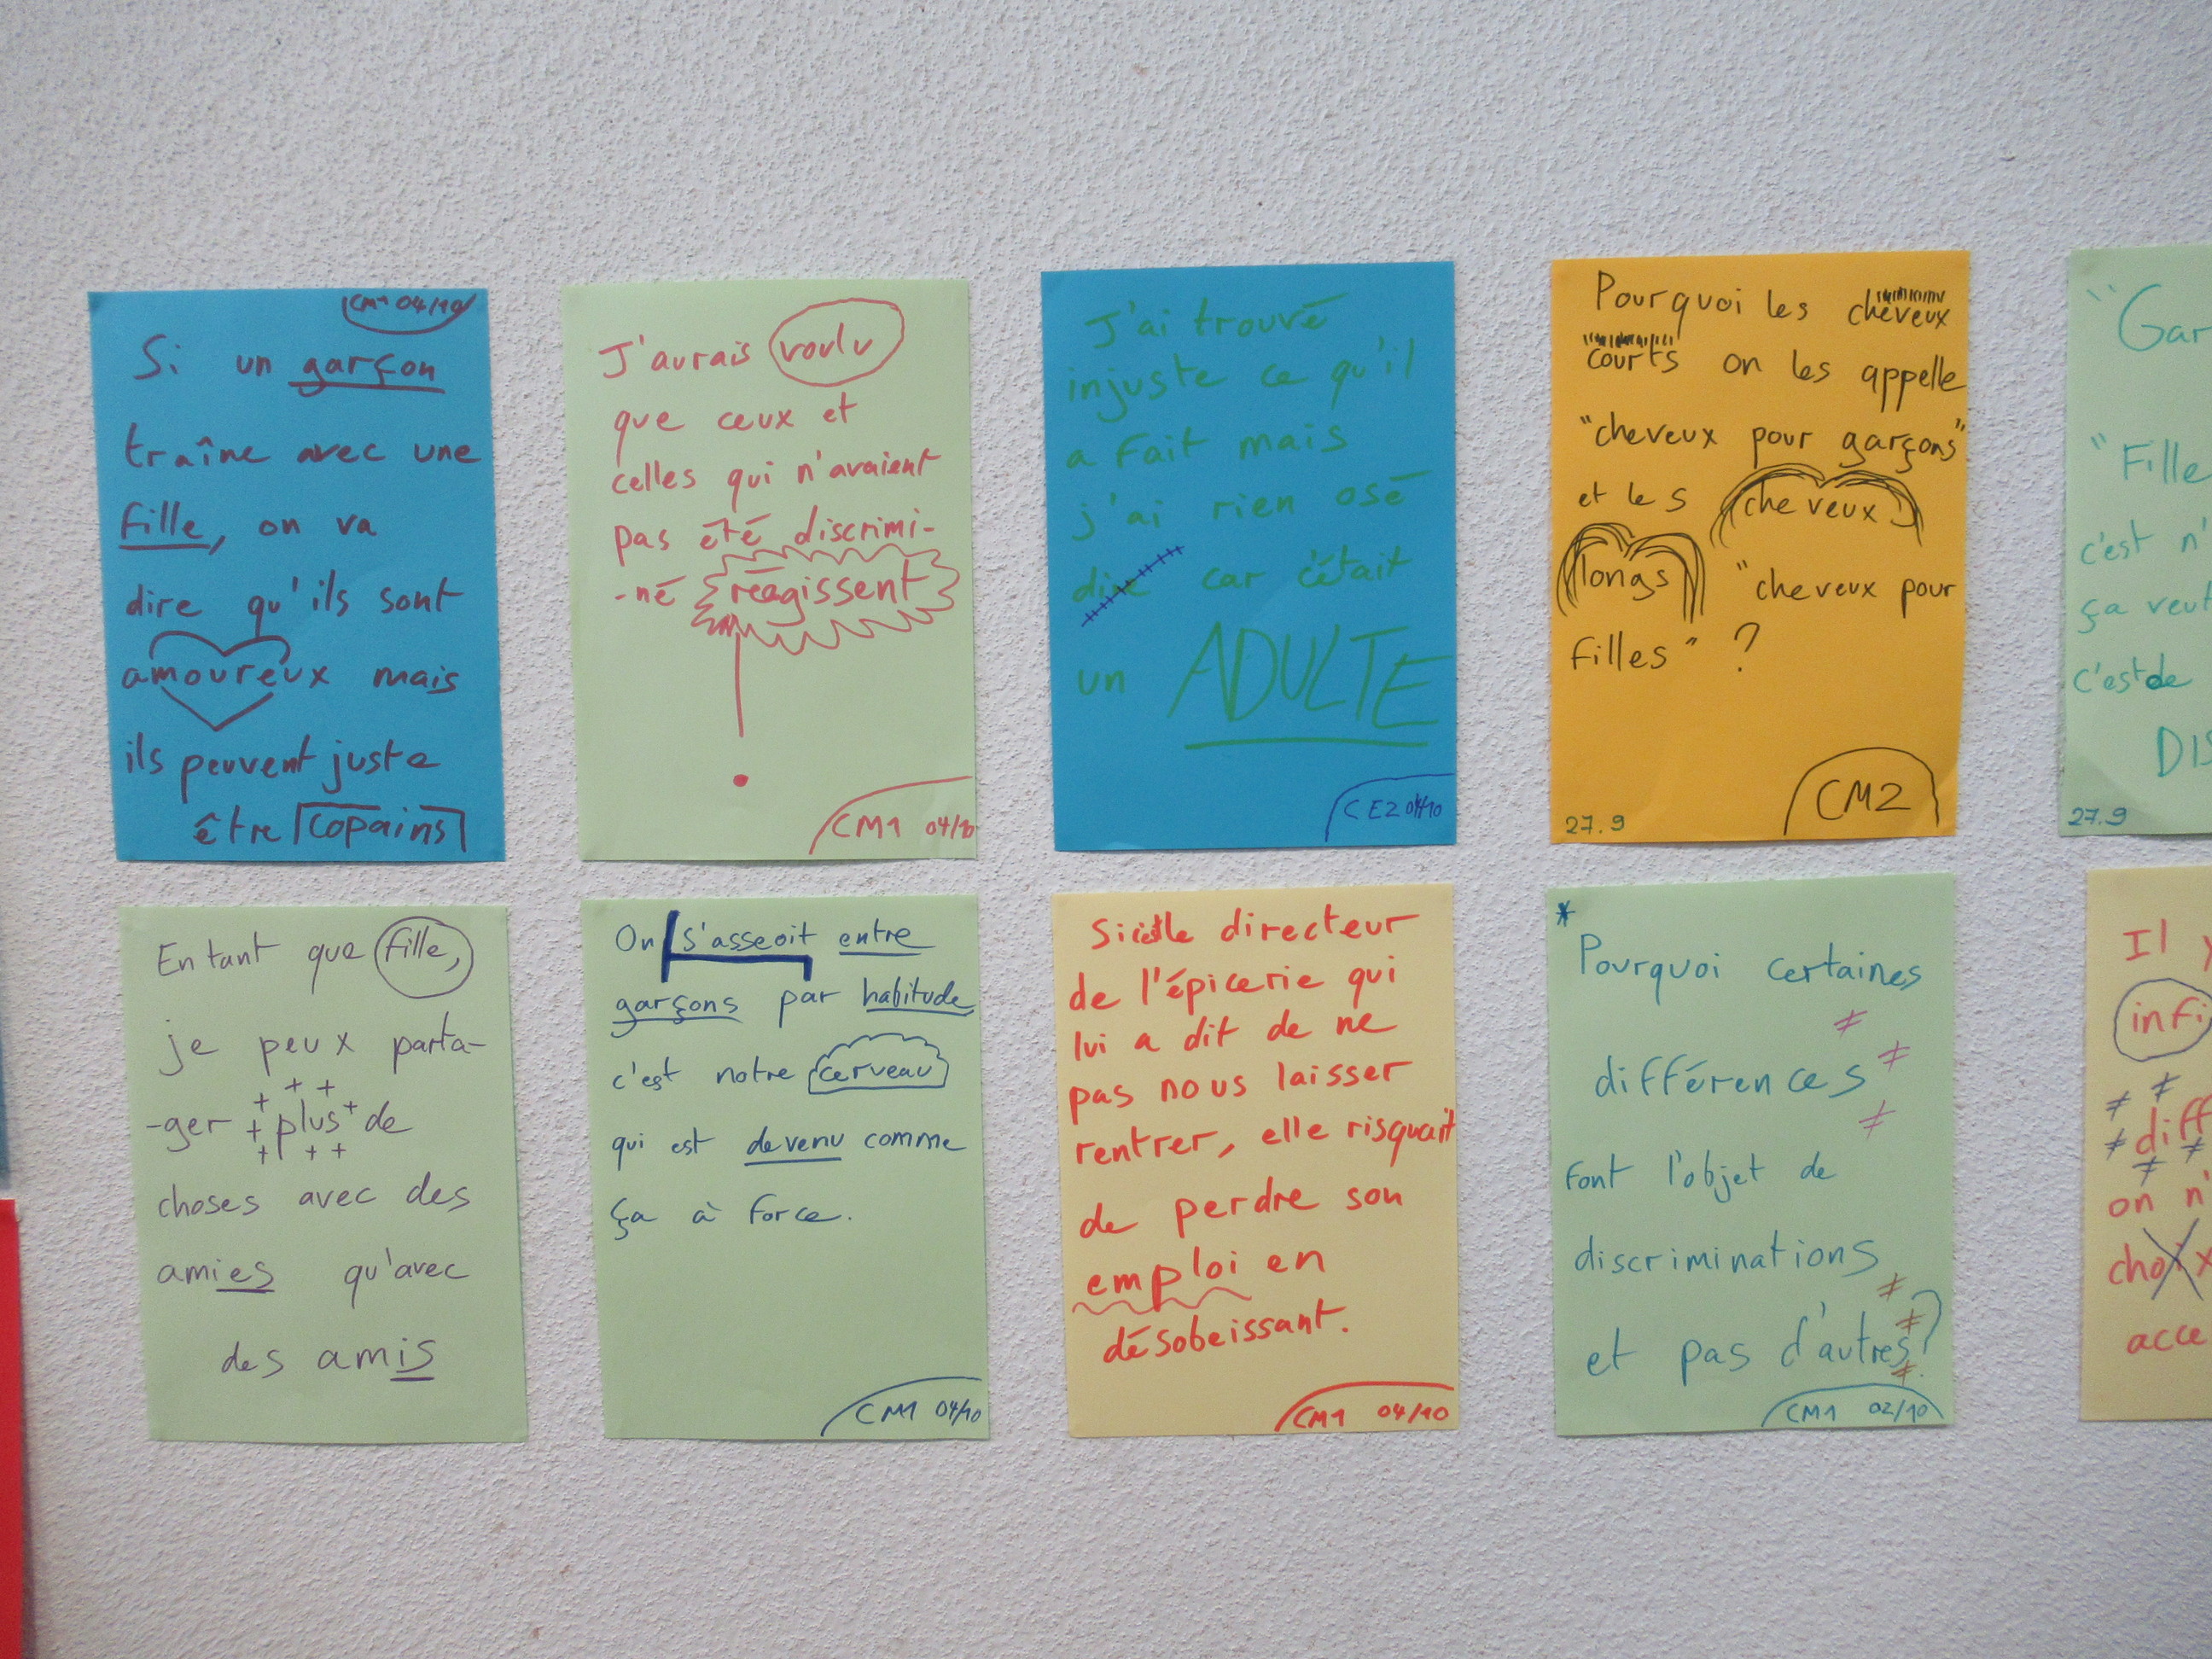 CM1 04/10
Si un garçon
traîne avec une
fille, on va
dire qu'ils sont
amoureux mais
ils peuvent juste
être copains
J'aurais voulu
que ceux et
celles qui n'avaient
pas été discrimi-
-né réagissent
!
CM1 04/10
J'ai trouvé
injuste ce qu'il
a fait mais
j'ai rien osé
dire car c'était
un ADULTE
CE2 04/10
Pourquoi les cheveux
courts on les appelle
"cheveux pour garçons"
et les cheveux
longs "cheveux pour
filles" ?
CM2
27.9
"Gar
"Fille
c'est n'
ça veut
c'est de
DIS
27.9
En tant que fille,
je peux parta-
-ger plus de
choses avec des
amies qu'avec
des amis
On s'asseoit entre
garçons par habitude
c'est notre cerveau
qui est devenu comme
ça à force.
CM1 04/10
Si c'est le directeur
de l'épicerie qui
lui a dit de ne
pas nous laisser
rentrer, elle risquait
de perdre son
emploi en
désobeissant.
CM1 04/10
*
Pourquoi certaines
≠
différences ≠
≠
font l'objet de
discriminations
et pas d'autres ?
CM1 02/10
Il y
infi
≠ ≠
≠ diff
≠ ≠
on n'
choix
acce